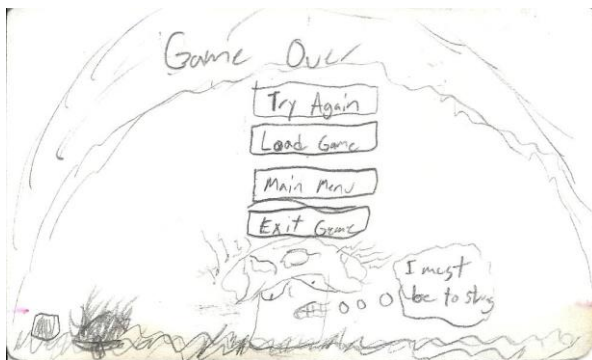 Game Over
Try Again
Load Game
Main Menu
Exit Game
I must
be to